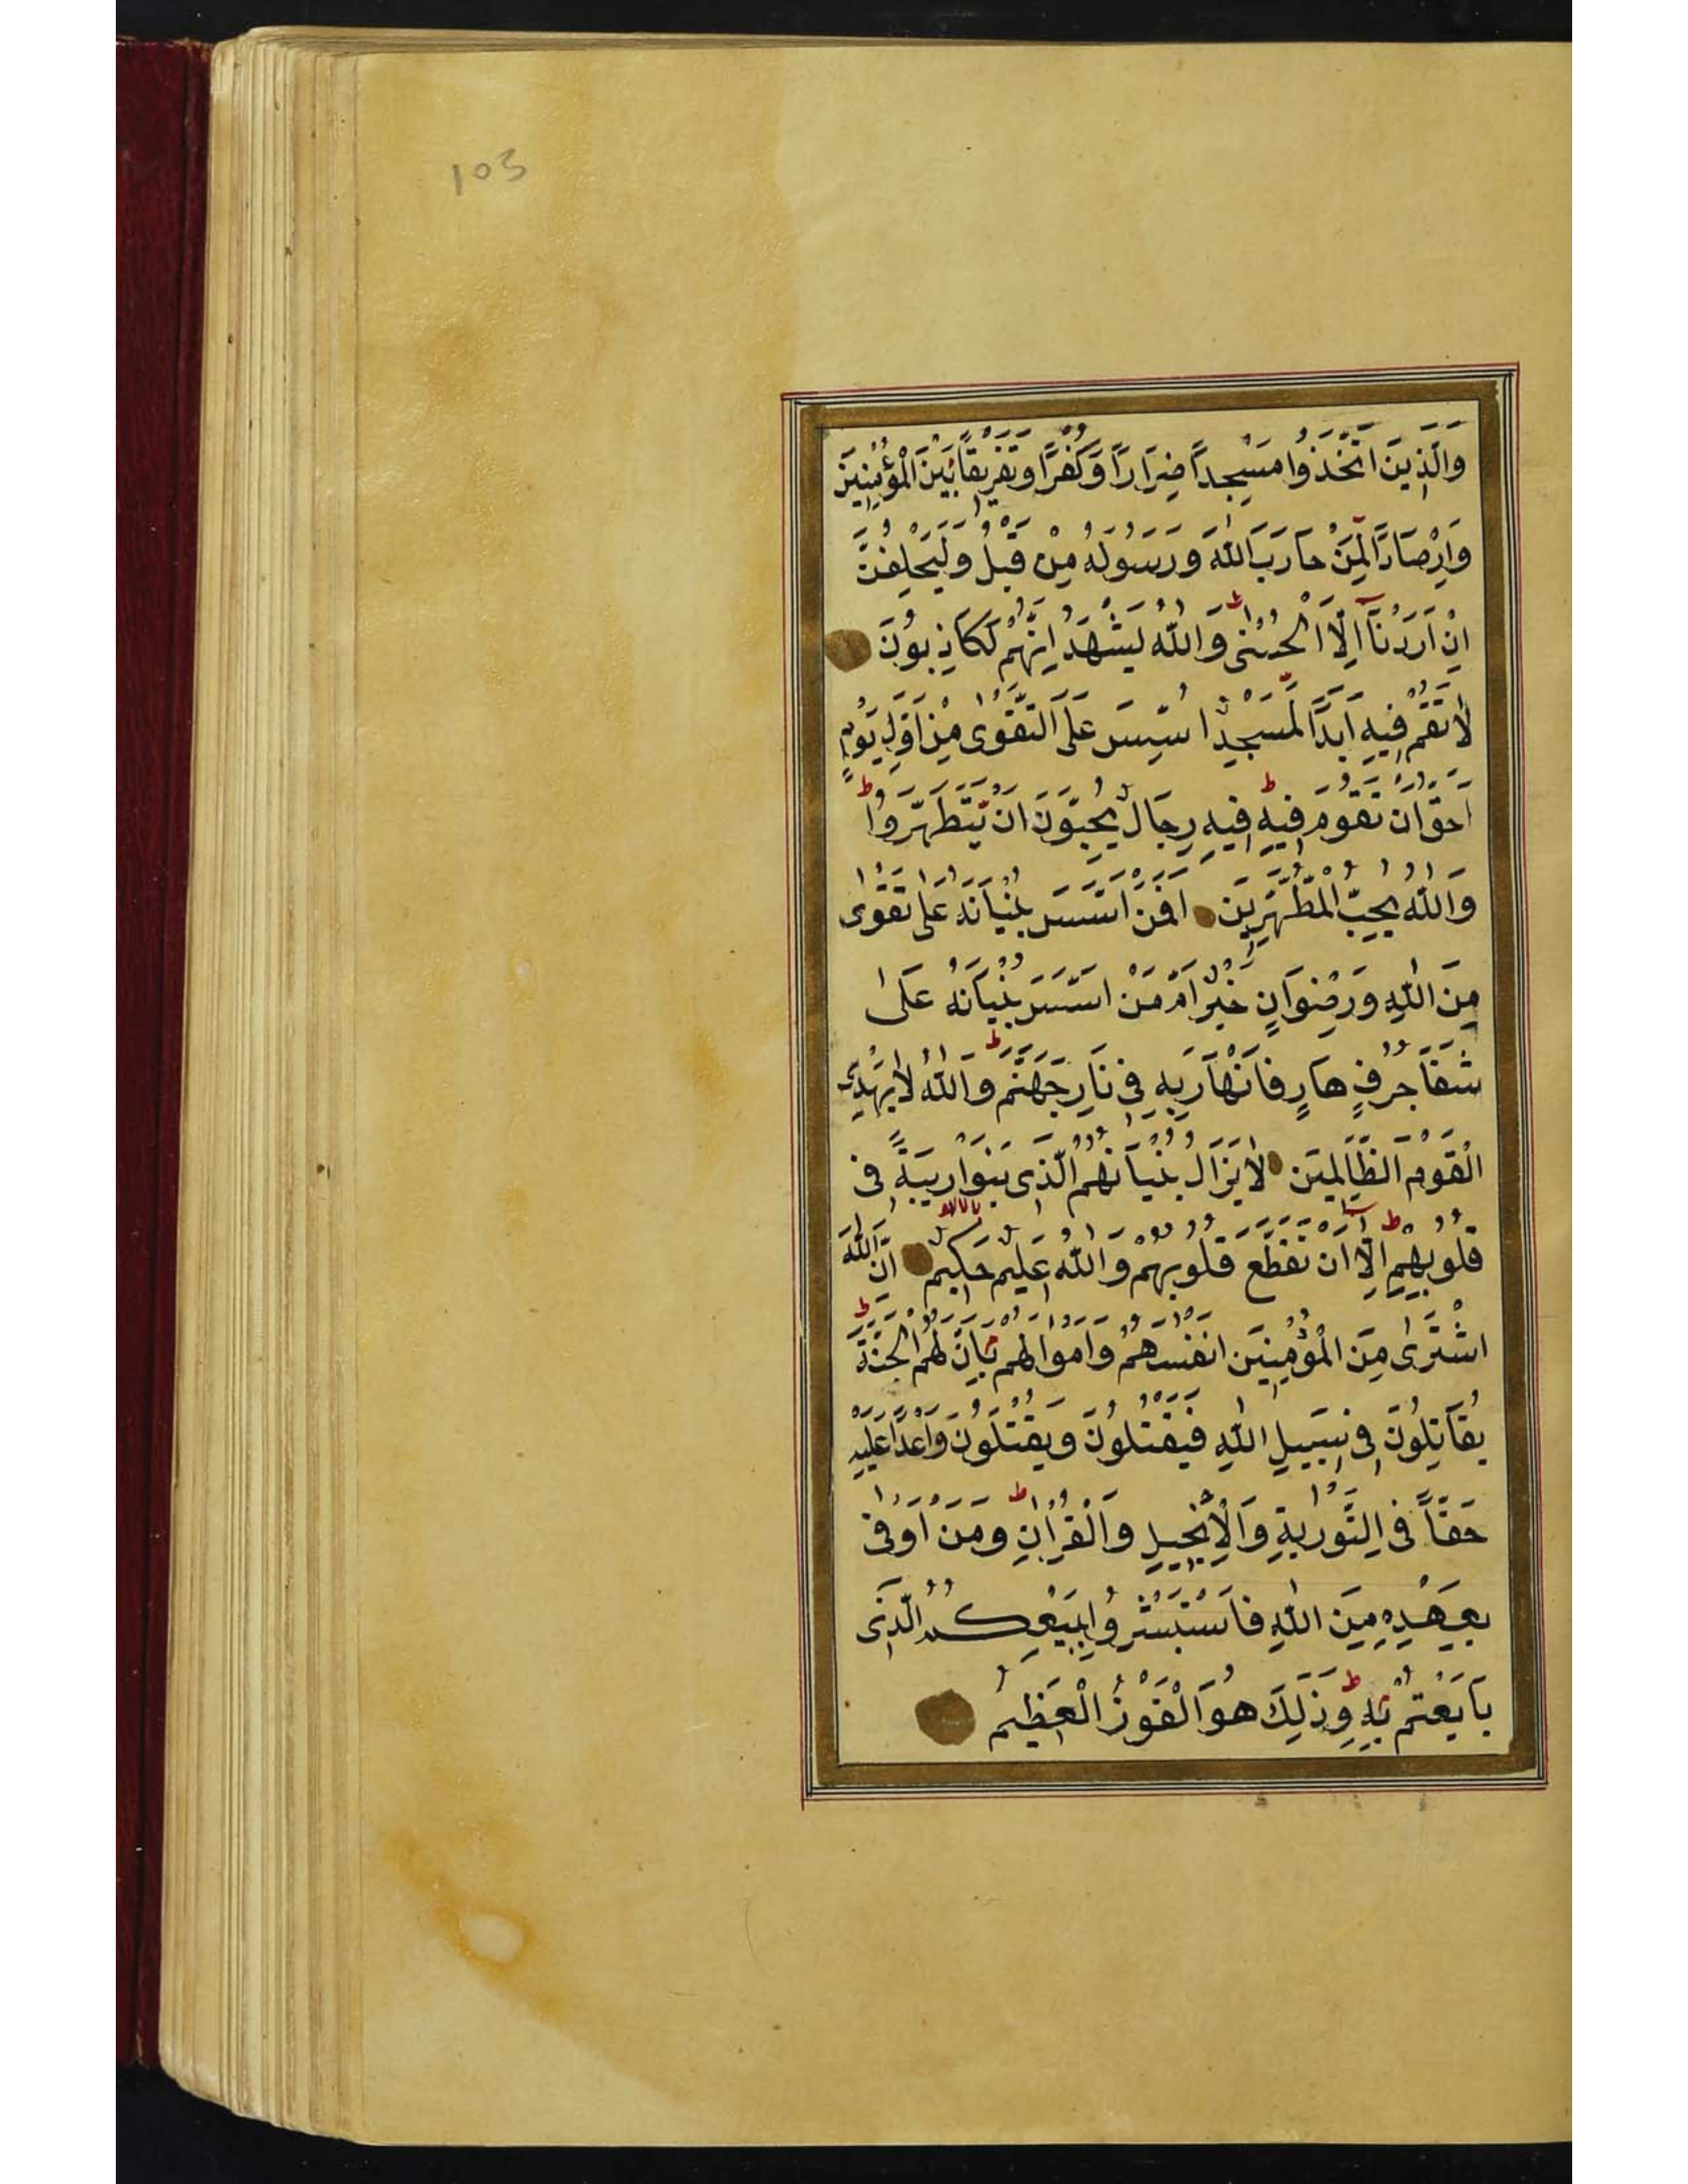 103
وَالَّذِينَ اتَّخَذُوا مَسْجِدًا ضِرَارًا وَكُفْرًا وَتَفْرِيقًا بَيْنَ الْمُؤْمِنِينَ
وَاِرْصَادًا لِمَنْ حَارَبَ اللّٰهَ وَرَسُولَهُ مِنْ قَبْلُ وَلَيَحْلِفُنَّ
اِنْ اَرَدْنَٓا اِلَّا الْحُسْنٰى وَاللّٰهُ يَشْهَدُ اِنَّهُمْ لَكَاذِبُونَ
لَا تَقُمْ فِيهِ اَبَدًا لَمَسْجِدٌ اُسِّسَ عَلَى التَّقْوٰى مِنْ اَوَّلِ يَوْمٍ
اَحَقُّ اَنْ تَقُومَ فِيهِ فِيهِ رِجَالٌ يُحِبُّونَ اَنْ يَتَطَهَّرُوا
وَاللّٰهُ يُحِبُّ الْمُطَّهِّرِينَ اَفَمَنْ اَسَّسَ بُنْيَانَهُ عَلٰى تَقْوٰى
مِنَ اللّٰهِ وَرِضْوَانٍ خَيْرٌ اَمْ مَنْ اَسَّسَ بُنْيَانَهُ عَلٰى
شَفَا جُرُفٍ هَارٍ فَانْهَارَ بِهِ فِى نَارِ جَهَنَّمَ وَاللّٰهُ لَا يَهْدِى
الْقَوْمَ الظَّالِمِينَ لَا يَزَالُ بُنْيَانُهُمُ الَّذِى بَنَوْا رِيبَةً فِى
قُلُوبِهِمْ اِلَّٓا اَنْ تَقَطَّعَ قُلُوبُهُمْ وَاللّٰهُ عَلِيمٌ حَكِيمٌ اِنَّ اللّٰهَ
اشْتَرٰى مِنَ الْمُؤْمِنِينَ اَنْفُسَهُمْ وَاَمْوَالَهُمْ بِاَنَّ لَهُمُ الْجَنَّةَ
يُقَاتِلُونَ فِى سَبِيلِ اللّٰهِ فَيَقْتُلُونَ وَيُقْتَلُونَ وَاعْدًا عَلَيْهِ
حَقًّا فِى التَّوْرٰيةِ وَالْاِنْجِيلِ وَالْقُرْاٰنِ وَمَنْ اَوْفٰى
بِعَهْدِهِ مِنَ اللّٰهِ فَاسْتَبْشِرُوا بِبَيْعِكُمُ الَّذِى
بَايَعْتُمْ بِهِ وَذٰلِكَ هُوَ الْفَوْزُ الْعَظِيمُ